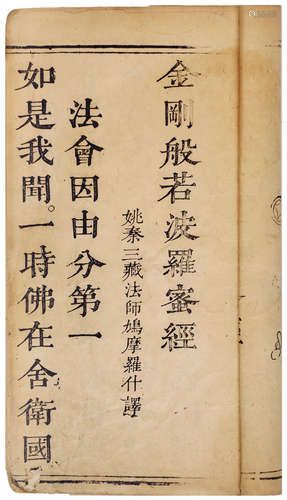 金剛般若波羅蜜經
姚秦三藏法師鳩摩羅什譯
法會因由分第一
如是我聞。一時佛在舍衛國